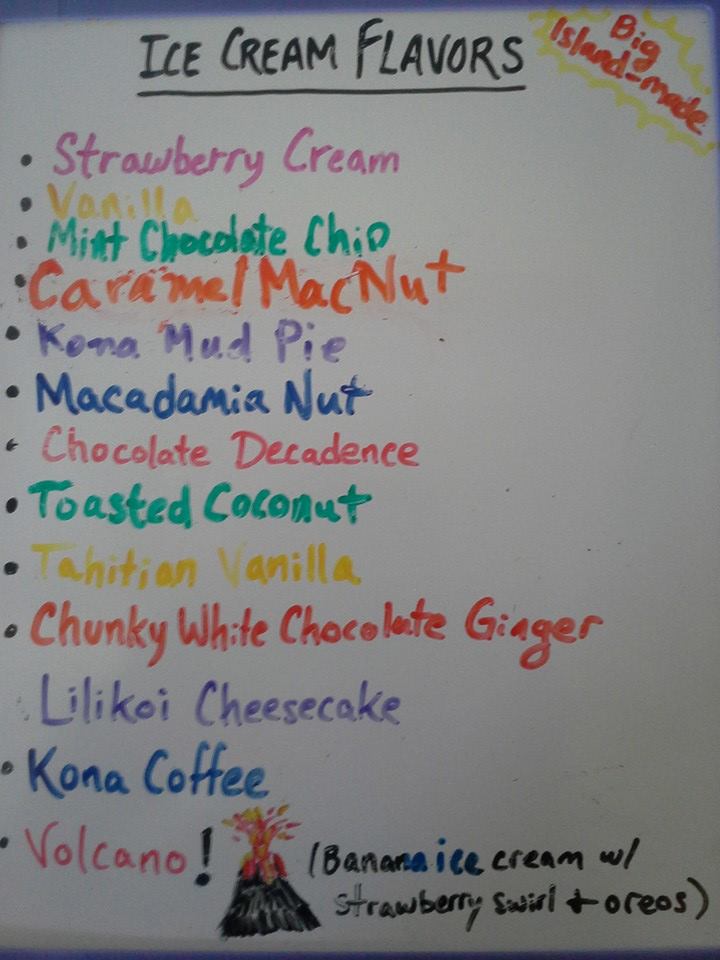 ICE CREAM FLAVORS
Big
Island-made
• Strawberry Cream
• Vanilla
• Mint Chocolate Chip
• Caramel MacNut
• Kona Mud Pie
• Macadamia Nut
• Chocolate Decadence
• Toasted Coconut
• Tahitian Vanilla
• Chunky White Chocolate Ginger
• Lilikoi Cheesecake
• Kona Coffee
• Volcano! (Banana ice cream w/
strawberry swirl + oreos)